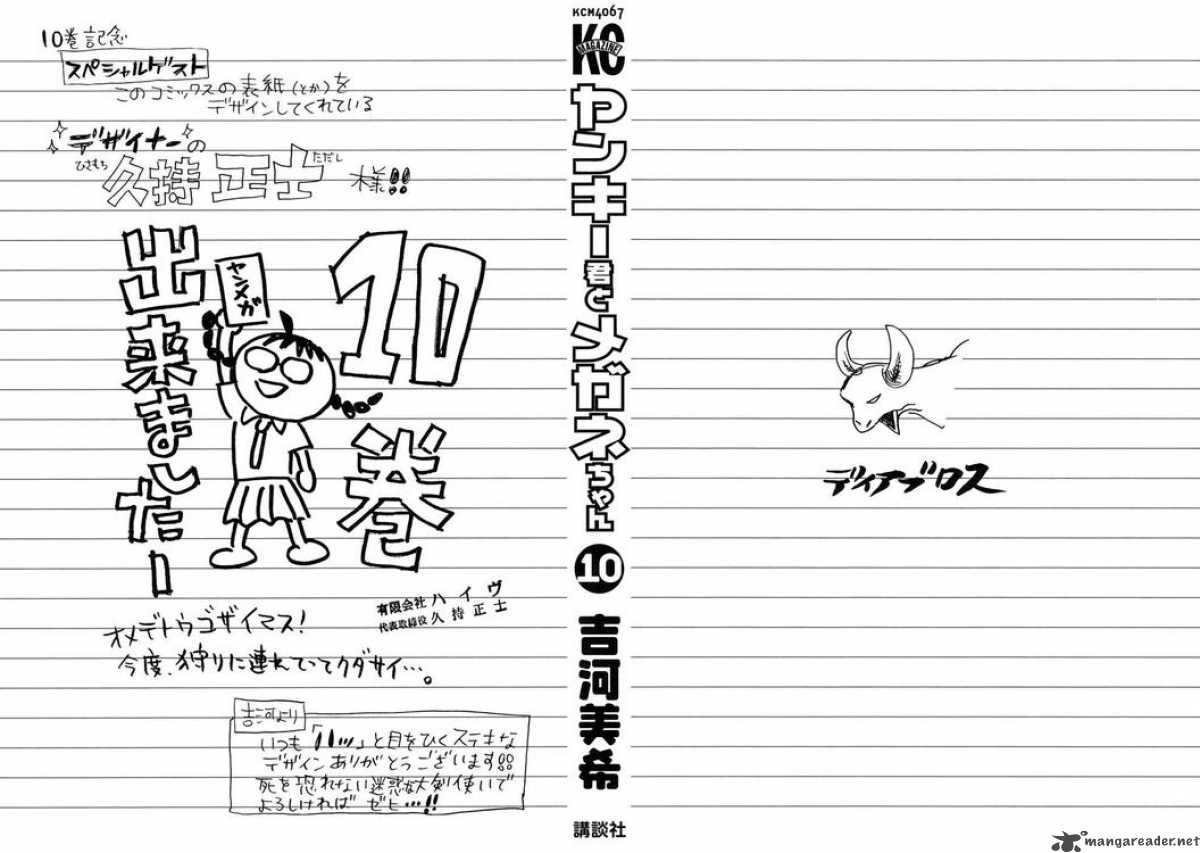 10巻記念
スペシャルゲスト
このコミックスの表紙(とか)を
デザインしてくれている
デザイナーの
ひさもち ただし
久持 正士 様!!
10巻
出来ましたー
ヤンメガ
有限会社 ハイヴ
代表取締役 久持正士
オメデトウゴザイマス!
今度、狩りに連れてってクダサイ…。
吉河より
いつも「ハッ」と目をひくステキな
デザインありがとうございます!!
死を恐れない迷惑な大剣使いで
よろしければ ゼヒ…!!
KCM4067
KC
MAGAZINE
ヤンキー君とメガネちゃん
10
吉河美希
講談社
ディアブロス
mangareader.net